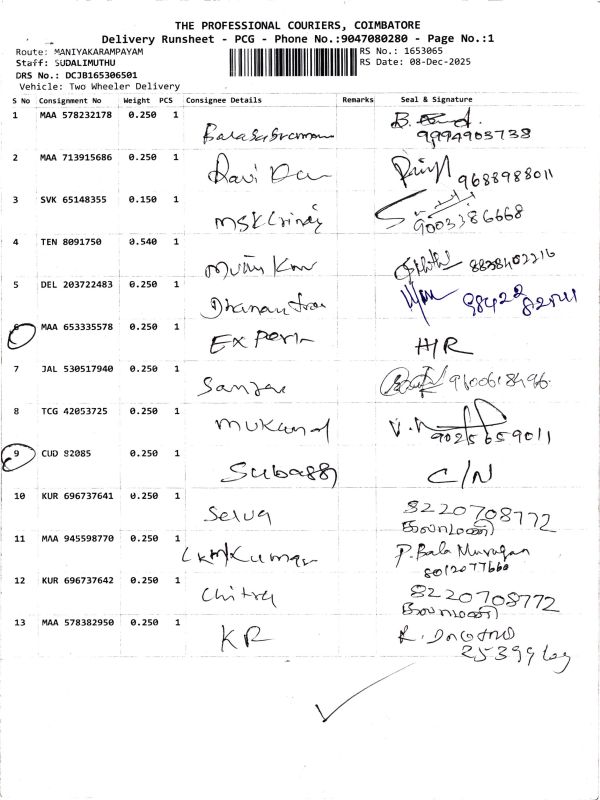 THE PROFESSIONAL COURIERS, COIMBATORE
Delivery Runsheet - PCG - Phone No.:9047080280 - Page No.:1
Route: MANIYAKARAMPAYAM RS No.: 1653065
Staff: SUDALIMUTHU RS Date: 08-Dec-2025
DRS No.: DCJB165306501
Vehicle: Two Wheeler Delivery
S No Consignment No Weight PCS Consignee Details Remarks Seal & Signature
1 MAA 578232178 0.250 1
9994903738
2 MAA 713915686 0.250 1
Ravi 9688988011
3 SVK 65148355 0.150 1
9003386668
4 TEN 8091750 0.540 1
8838402216
5 DEL 203722483 0.250 1
6 MAA 653335578 0.250 1
Export H/R
7 JAL 530517940 0.250 1
Sanjay
8 TCG 42053725 0.250 1
9025659011
9 CUD 92085 0.250 1
Subash C/N
10 KUR 696737641 0.250 1
Selva 8220708772
கலாமணி
11 MAA 945598770 0.250 1
LKMKumar P. Bala Murugan
8012077660
12 KUR 696737642 0.250 1
Chitra 8220708772
கலாமணி
13 MAA 578382950 0.250 1
KR